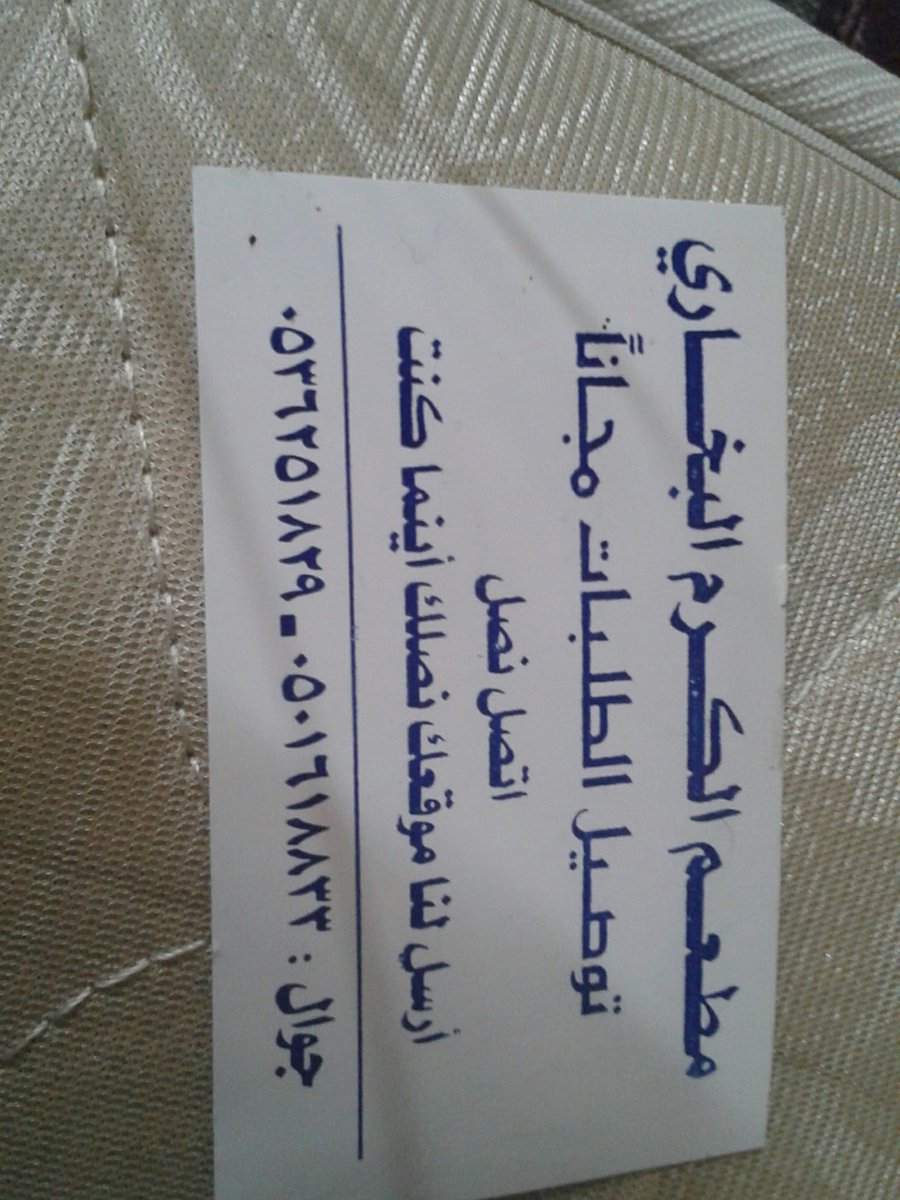 مطعم الكرم البخاري
توصيل الطلبات مجاناً
اتصل نصل
أرسل لنا موقعك نصلك أينما كنت
جوال : ٠٥٠١٦١٨٨٣٣ - ٠٥٣٦٢٥١٨٢٩